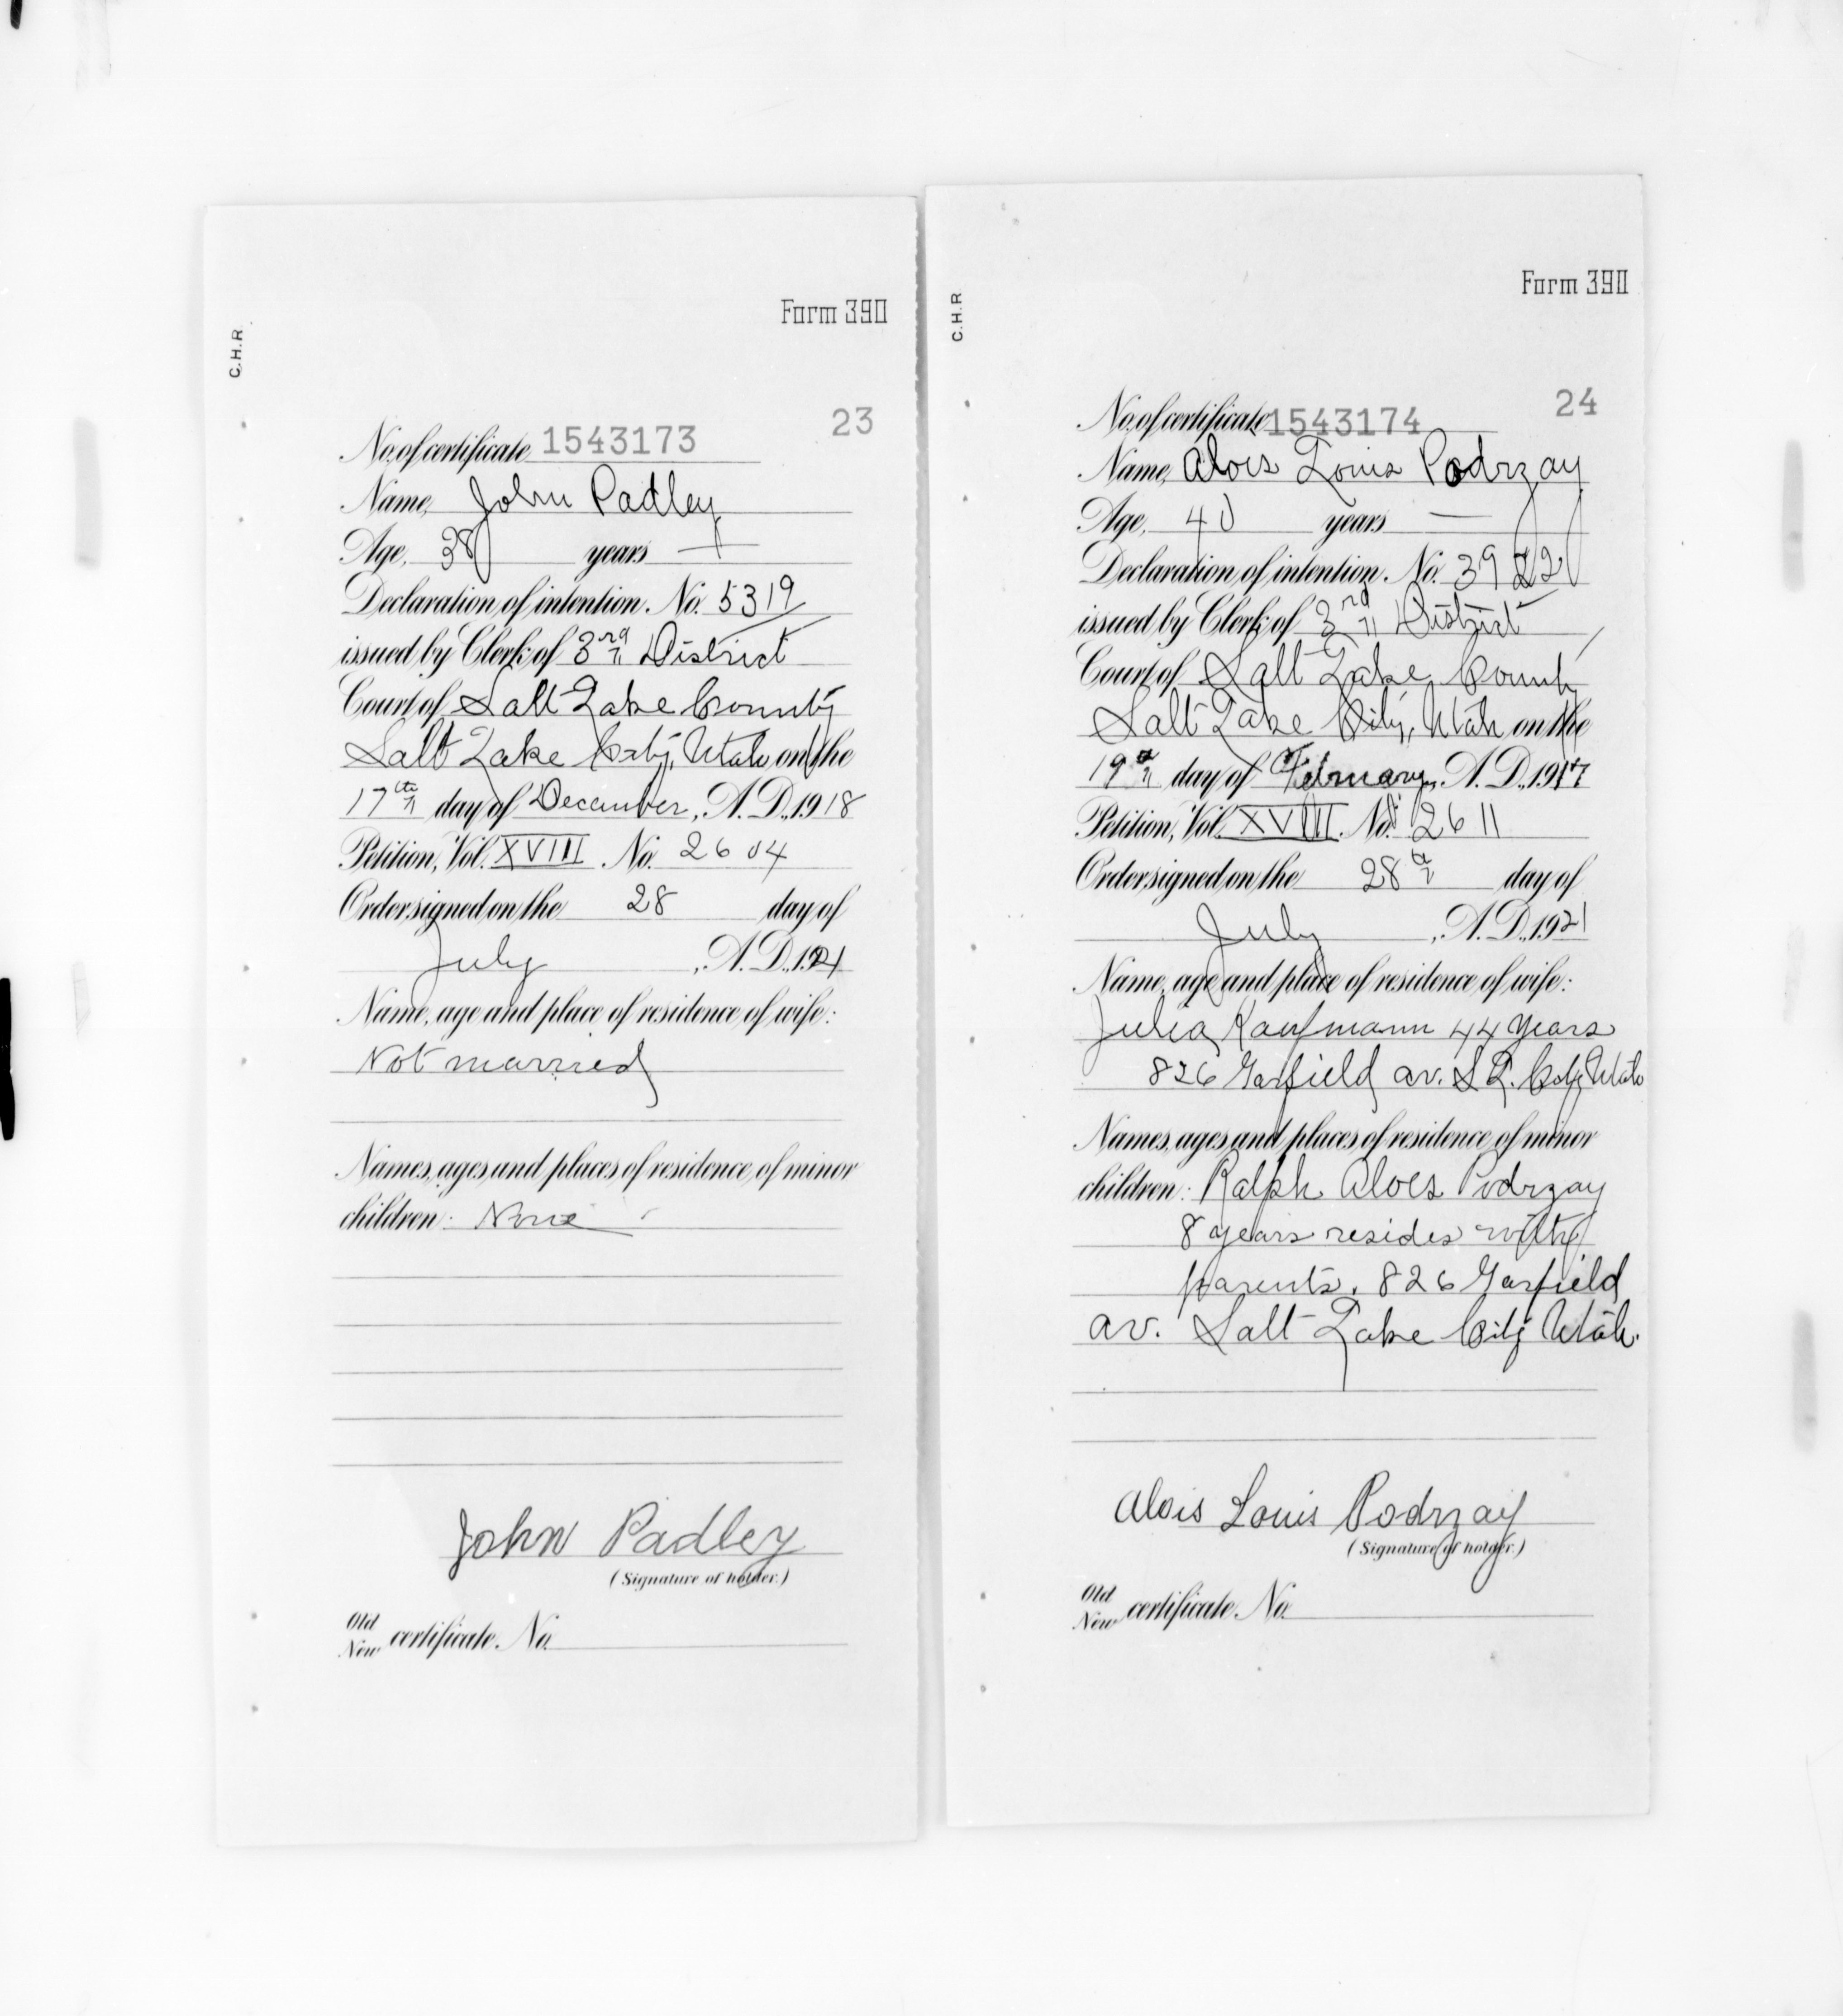 Form 390
C.H.R.
23
No. of certificate 1543173
Name, John Padley
Age, 38 years —
Declaration of intention. No. 5319
issued by Clerk of 3rd District
Court of Salt Lake County
Salt Lake City, Utah on the
17th day of December, A.D., 1918
Petition, Vol. XVIII No. 2604
Order signed on the 28 day of
July, A.D., 1921
Name, age and place of residence of wife:
Not married
Names, ages and places of residence of minor
children: None
John Padley
(Signature of holder.)
Old
New certificate. No.
Form 390
C.H.R
24
No. of certificate 1543174
Name, Alois Louis Podrzay
Age, 40 years —
Declaration of intention. No. 3922
issued by Clerk of 3rd District
Court of Salt Lake County
Salt Lake City, Utah on the
19th day of February, A.D., 1917
Petition, Vol. XVIII. No. 2611
Order signed on the 28th day of
July, A.D., 1921
Name, age and place of residence of wife:
Julia Kaufmann 44 years
826 Garfield av. S L. City Utah
Names, ages and places of residence of minor
children: Ralph Alois Podrzay
8 years resides with
parents. 826 Garfield
av. Salt Lake City Utah.
Alois Louis Podrzay
(Signature of holder.)
Old
New certificate. No.